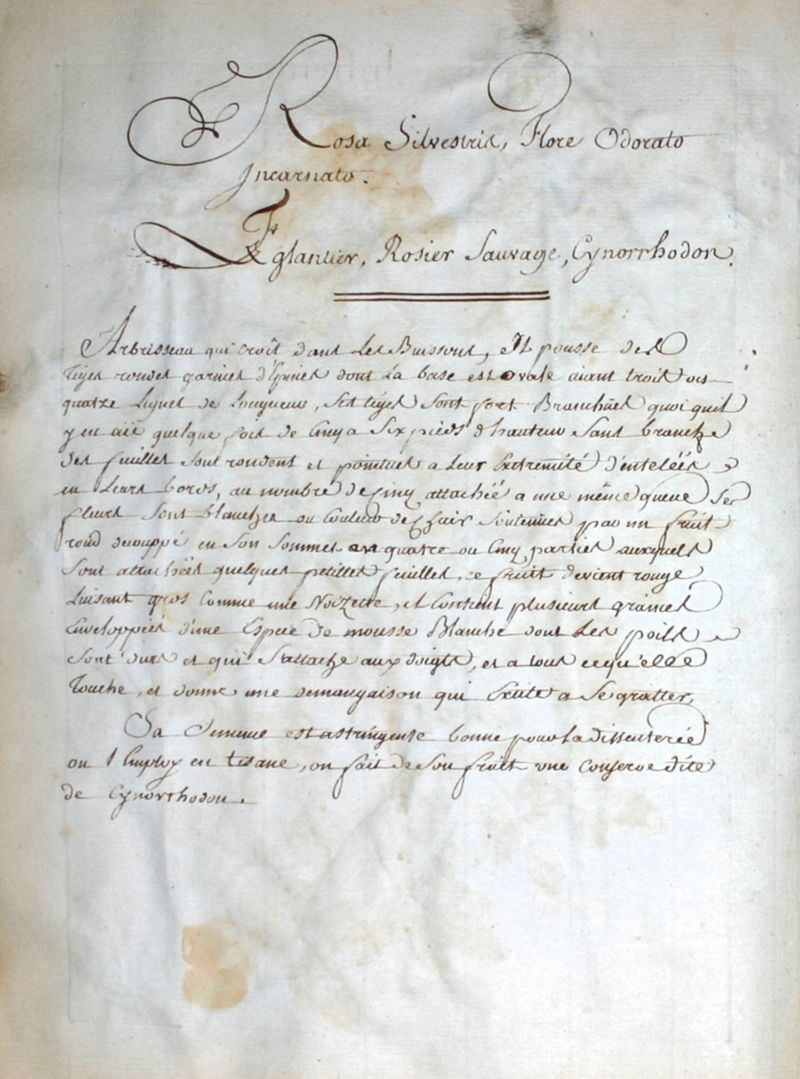 Rosa Silvestris, Flore Odorato
Incarnato.
Eglantier, Rosier Sauvage, Cynorrhodon.
Arbrisseau qui croît dans Les Buissons, Il pousse des
tiges rondes garnies d'Epines dont La base est ovale aiant trois ou
quatre Lignes de Longueur, ses tiges sont fort Branchües quoi quil
y en aie quelque fois de Cinq a Six pieds d'hauteur Sans branche
des feuilles sont rondes et pointues a Leur Extremité d'entelées
en Leurs bords, au nombre de Cinq attachée a une même queue Ses
fleurs sont blanches ou Couleur de Chair soutenues par un fruit
rond decouppé en Son Sommet en quatre ou Cinq parties auxquels
sont attachées quelques petittes feuilles, ce fruit devient rouge
Luisant gros Comme une Noizette, et Contient plusieurs graines
Enveloppées d'une Espece de mousse Blanche dont Les poils
sont durs et qui S'attache aux doigts, et a tous ce qu'elle
Touche, et donne une demangaison qui Exite a Se gratter,
Sa Semence est astringense bonne pour La dissenterée
on l'Employ en tisane, on fait de Son fruit une Conserve dite
de Cynorrhodon.